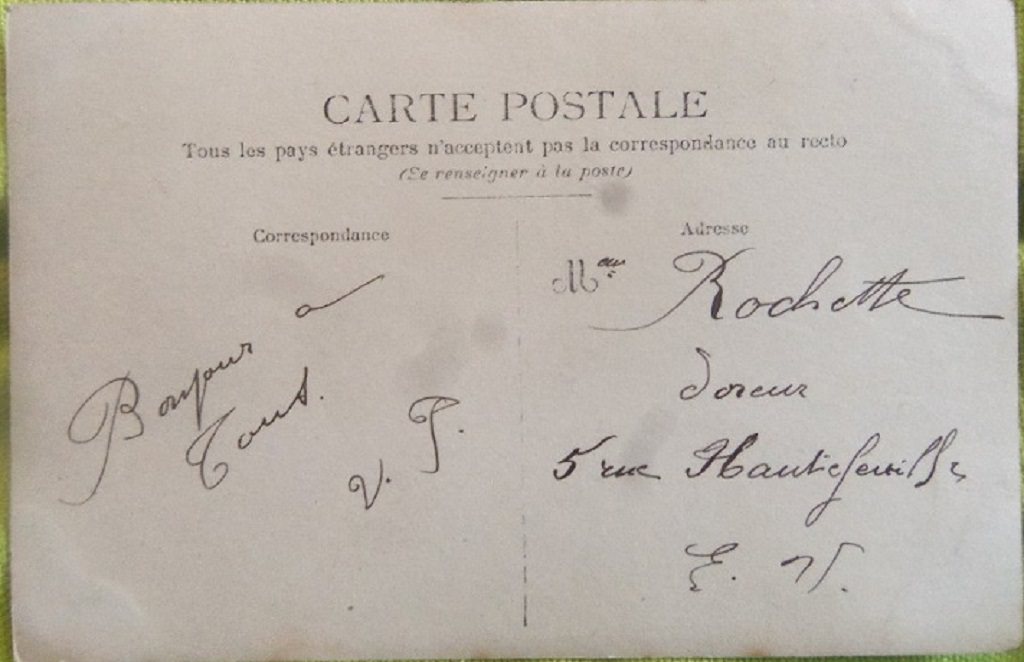 CARTE POSTALE
Tous les pays étrangers n'acceptent pas la correspondance au recto
(Se renseigner à la poste)
Correspondance
Bonjour à
Tous.
V. T.
Adresse
M
Rochette
doreur
5 rue Hautefeuille
E. V.